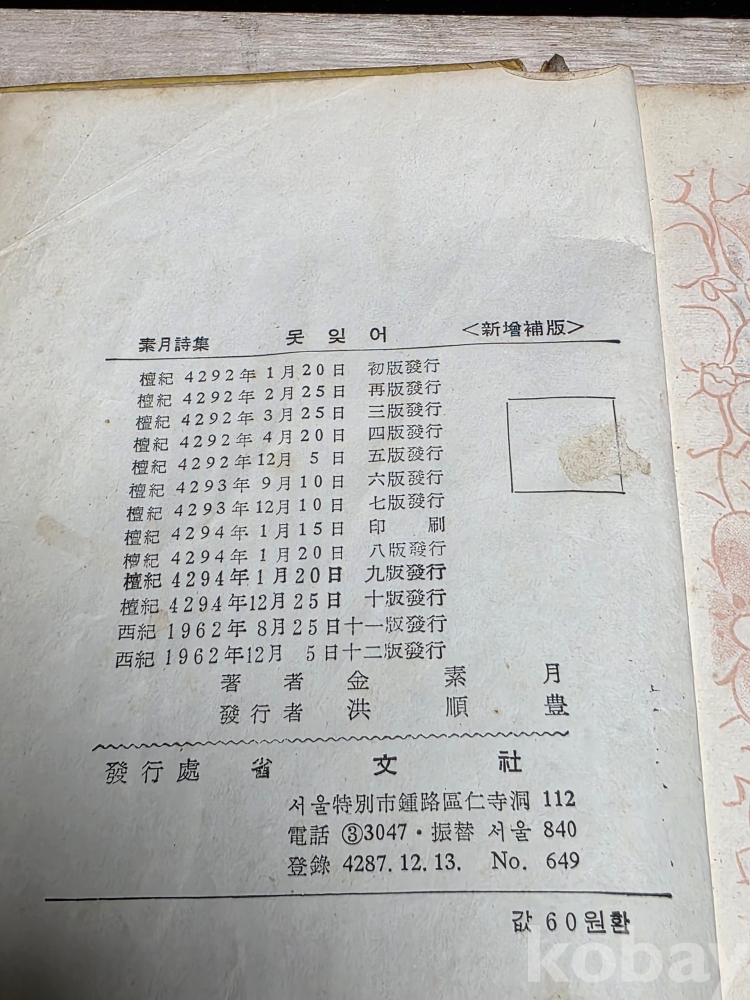 素月詩集 못잊어 <新增補版>
檀紀 4292年 1月20日 初版發行
檀紀 4292年 2月25日 再版發行
檀紀 4292年 3月25日 三版發行
檀紀 4292年 4月20日 四版發行
檀紀 4292年12月 5日 五版發行
檀紀 4293年 9月10日 六版發行
檀紀 4293年12月10日 七版發行
檀紀 4294年 1月15日 印刷
檀紀 4294年 1月20日 八版發行
檀紀 4294年 1月20日 九版發行
檀紀 4294年12月25日 十版發行
西紀 1962年 8月25日十一版發行
西紀 1962年12月 5日十二版發行
著者 金素月
發行者 洪順豊
發行處 省文社
서울特別市鍾路區仁寺洞 112
電話 ③3047·振替 서울 840
登錄 4287.12.13. No. 649
값 60원환
kobay